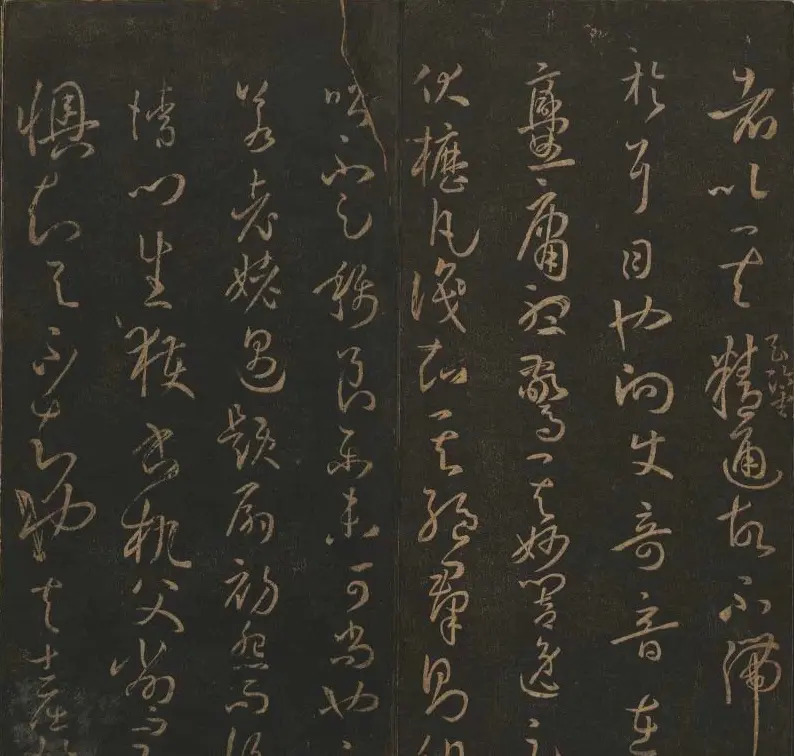 者以其精通故不滯
玄鑒
於耳目也向使奇音在
爨庸聽驚其妙響逸足
伏櫪凡識知其絕群則伯
喈不足稱良樂未可尚也
若老姥遇題扇初怨而後
請門生獲書机父削而
懊知与不知也夫士屈於